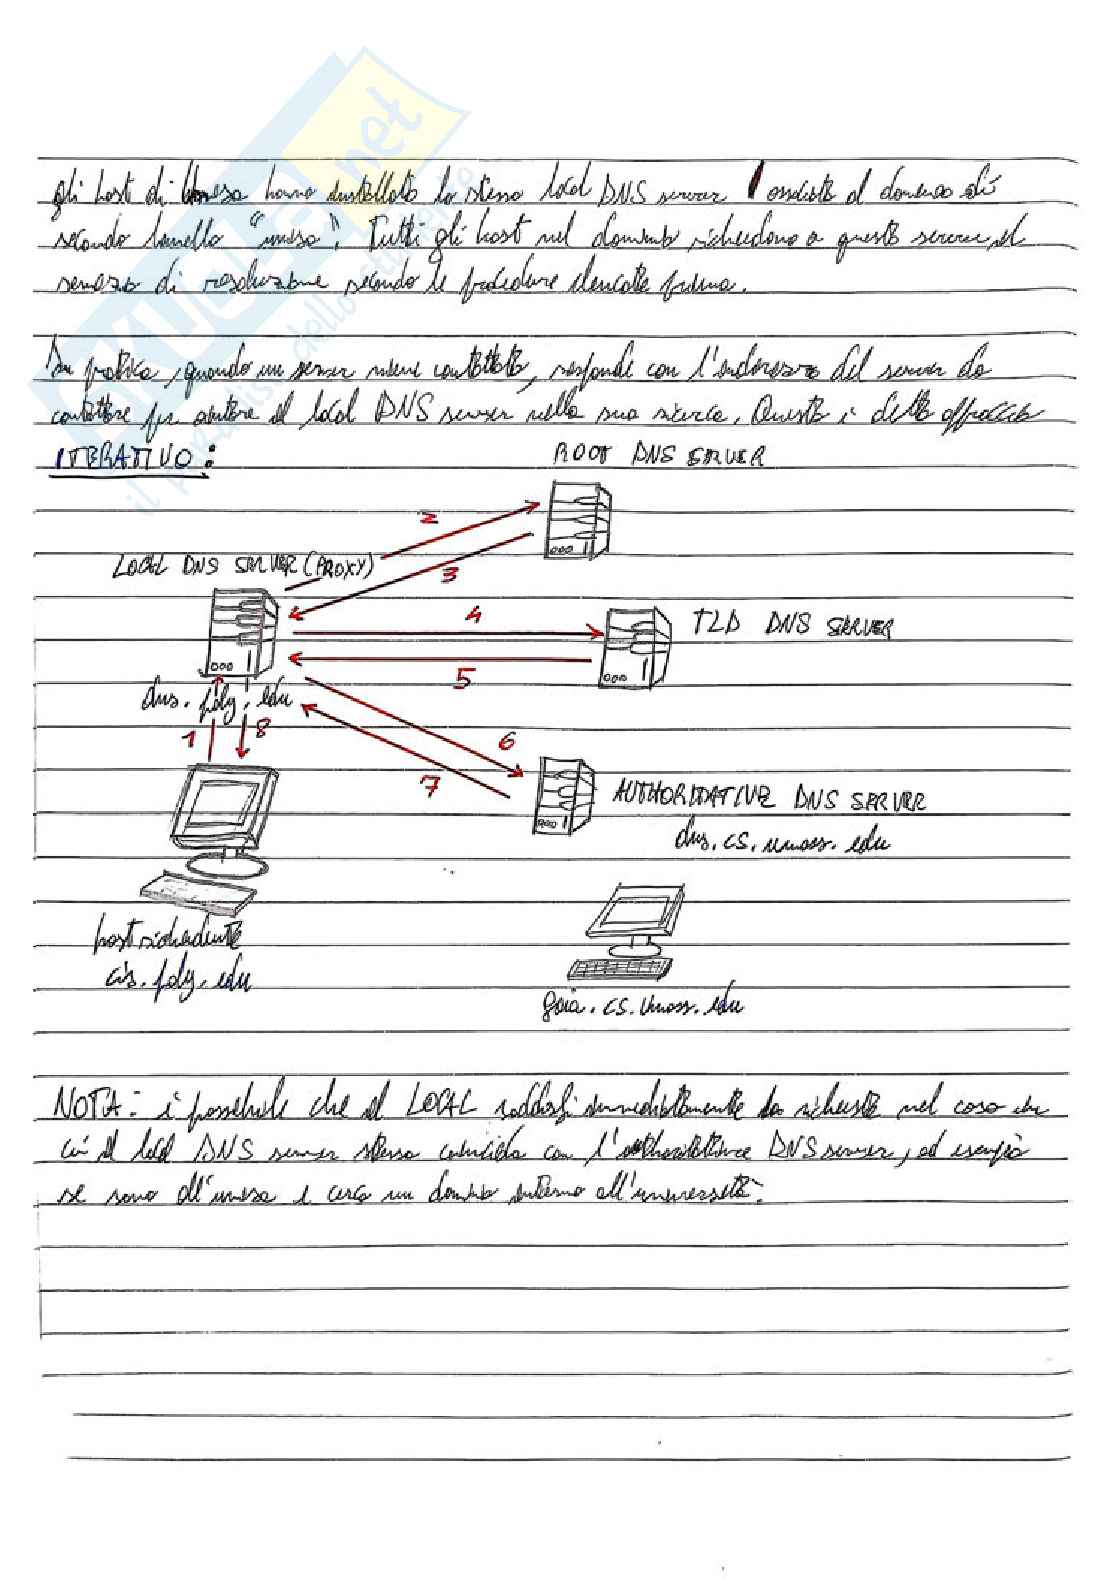 gli host di Unisa hanno installato lo stesso local DNS server associato al dominio di
secondo livello "unisa". Tutti gli host nel dominio richiedono a questo server il
servizio di risoluzione secondo le procedure elencate prima.
In pratica, quando un server viene contattato, risponde con l'indirizzo del server da
contattare per aiutare il local DNS server nella sua ricerca. Questo è detto approccio
ITERATIVO:
ROOT DNS SERVER
2
LOCAL DNS SERVER (PROXY)
3
4
TLD DNS SERVER
5
dns.poly.edu
1 8
6
7
AUTHORITATIVE DNS SERVER
dns.cs.umass.edu
host richiedente
cis.poly.edu
gaia.cs.umass.edu
NOTA: è possibile che il LOCAL soddisfi immediatamente la richiesta nel caso in
cui il local DNS server stesso coincida con l'authoritative DNS server, ad esempio
se sono all'unisa e cerco un dominio interno all'università.
SKUOLA.net
il paradiso dello studente